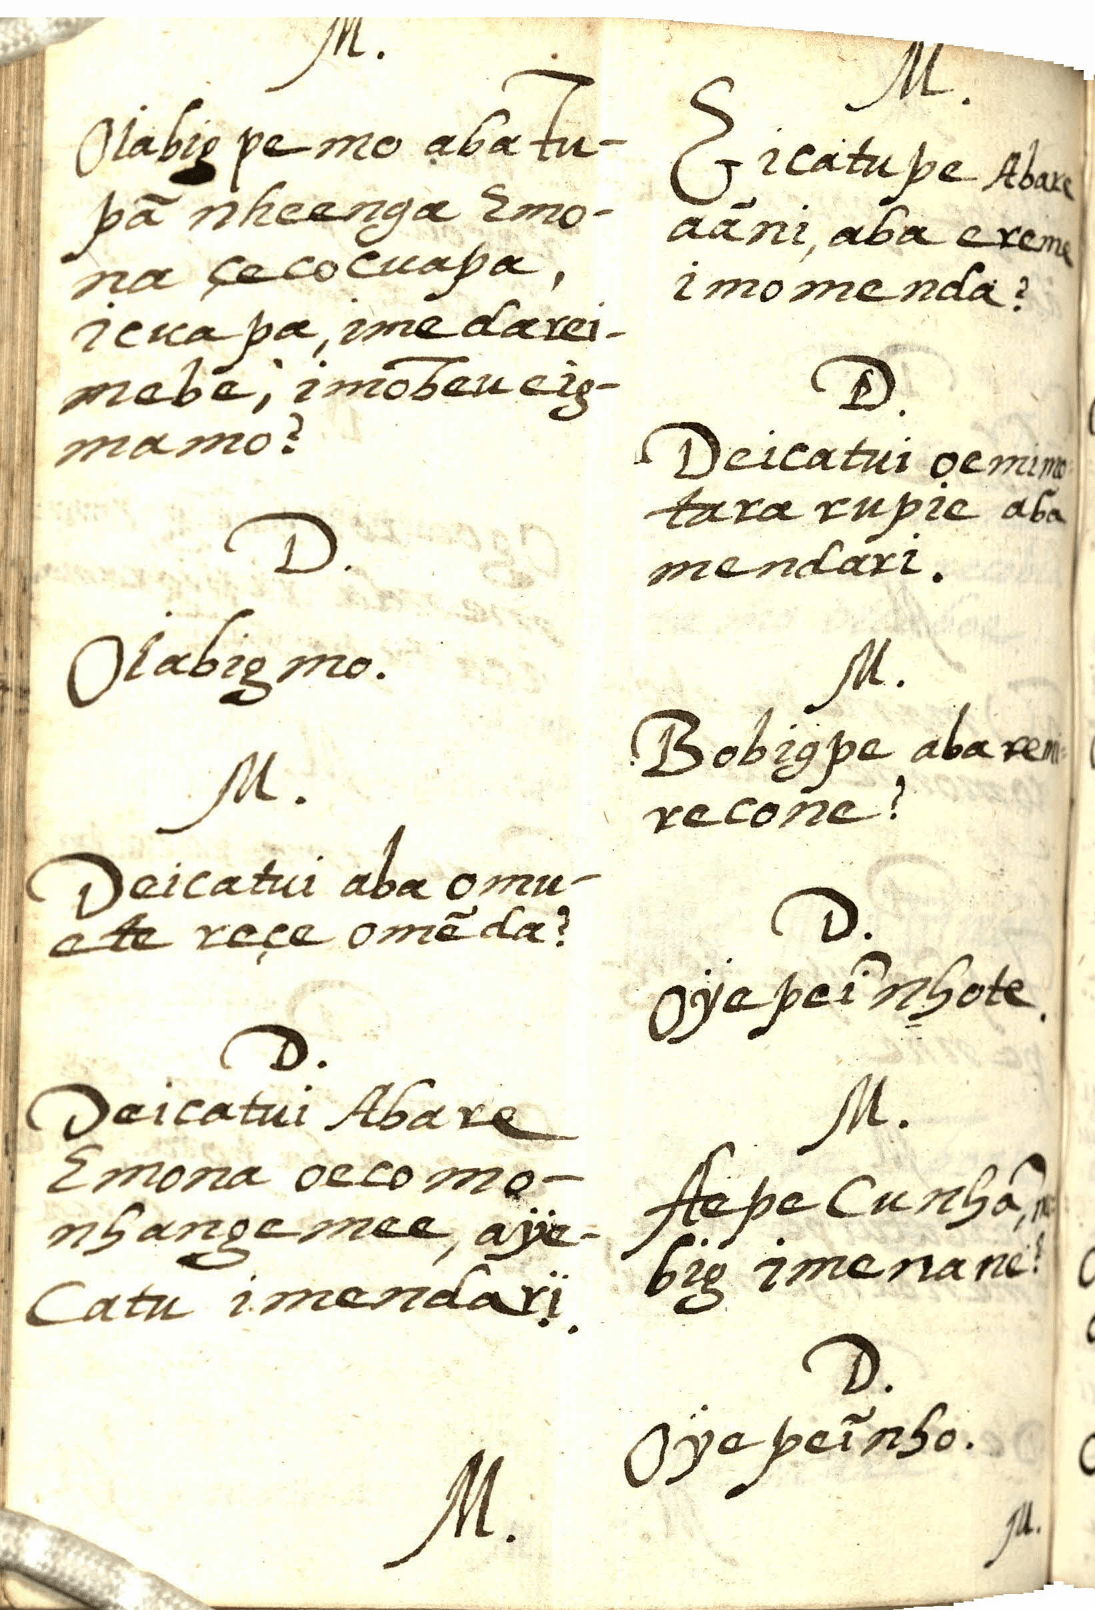 M.
Oiabig pe mo aba Tu-
pã nheenga Emo-
na çecocuapa,
icuapa, imẽdarei-
mebe, imõbeu eig-
mamo?
D.
Oiabig mo.
M.
Deicatui aba omu-
ete reçe omẽda?
D.
Deicatui Abare
Emona oecomo-
nhangemee, aÿe-
Catu imendarï.
M.
M.
Eicatupe Abare
aãni, aba ereme
imomenda?
D.
Deicatui oemimo
tara rupie aba
mendari.
M.
Bobigpe aba remi-
recone?
D.
Oÿepeĩ nhote.
M.
Aepe Cunhã,
big imenane?
D.
Oÿepeĩnho.
M.